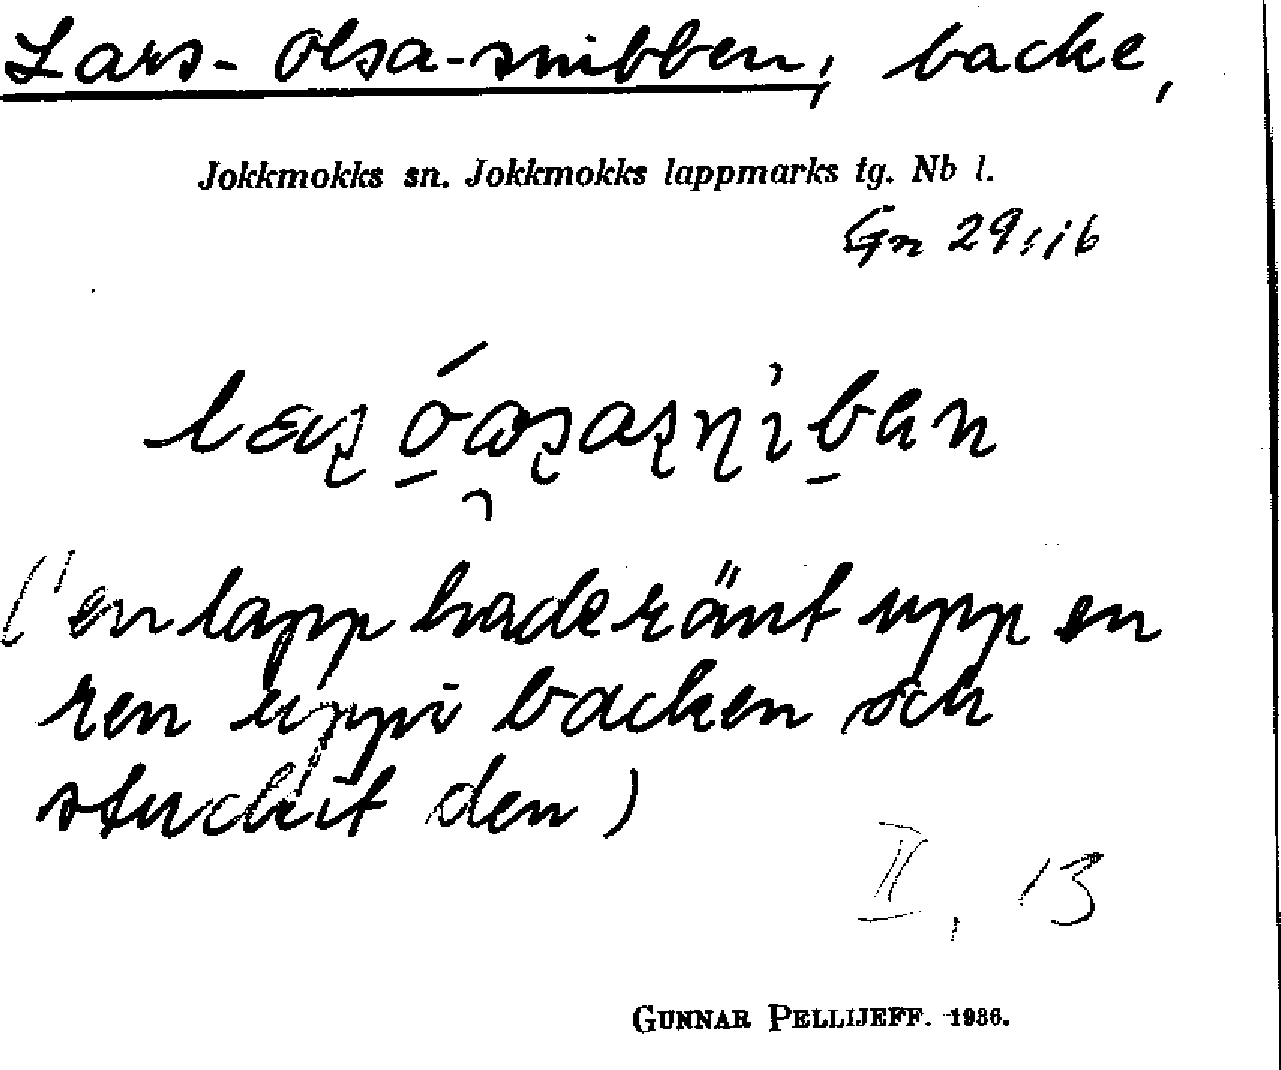 Lars-Olsa-snibben, backe,
Jokkmokks sn. Jokkmokks lappmarks tg. Nb l.
Gn 29:1:16
(en lapp hade ränt upp en
ren uppi backen och
stuckit den)
II, 13
GUNNAR PELLIJEFF. 1936.